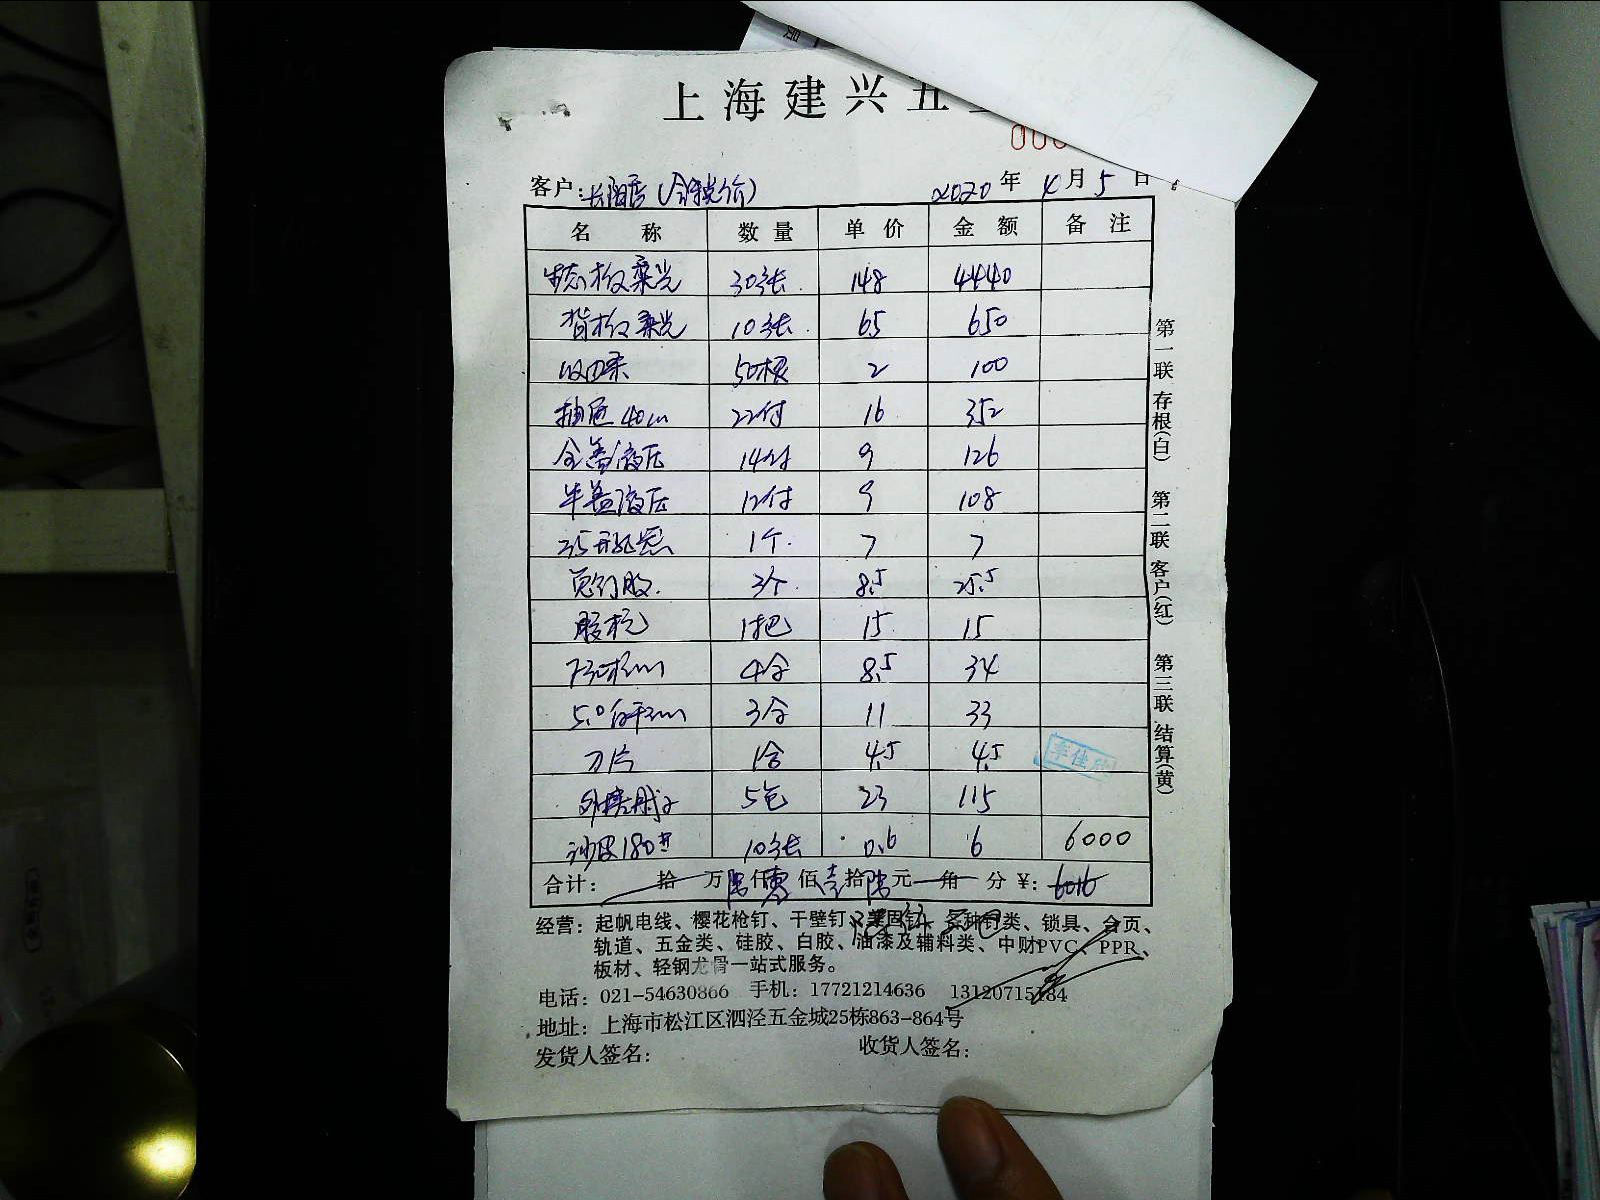 上海建兴五
000
客户：长阳店（含税价） 2020年4月5日
名称 数量 单价 金额 备注
生态板柔光 30张 148 4440
背板柔光 10张 65 650
收口条 50根 2 100
抽屉40cm 22付 16 352
全盖液压 14付 9 126
半盖液压 12付 9 108
35开孔器 1个 7 7
免钉胶 3个 8.5 25.5
胶枪 1把 15 15
4合 8.5 34
3合 11 33
刀片 1合 4.5 4.5
5包 23 115
沙皮180# 10张 0.6 6 6000
合计： 拾 万 陆 仟 零 佰 壹 拾 陆 元 角 分 ￥：6016
经营：起帆电线、樱花枪钉、干壁钉、美固钉、各种钉类、锁具、合页、
轨道、五金类、硅胶、白胶、油漆及辅料类、中财PVC、PPR、
板材、轻钢龙骨一站式服务。
电话：021-54630866 手机：17721214636 13120715184
地址：上海市松江区泗泾五金城25栋863-864号
发货人签名： 收货人签名：
第一联 存根（白） 第二联 客户（红） 第三联 结算（黄）